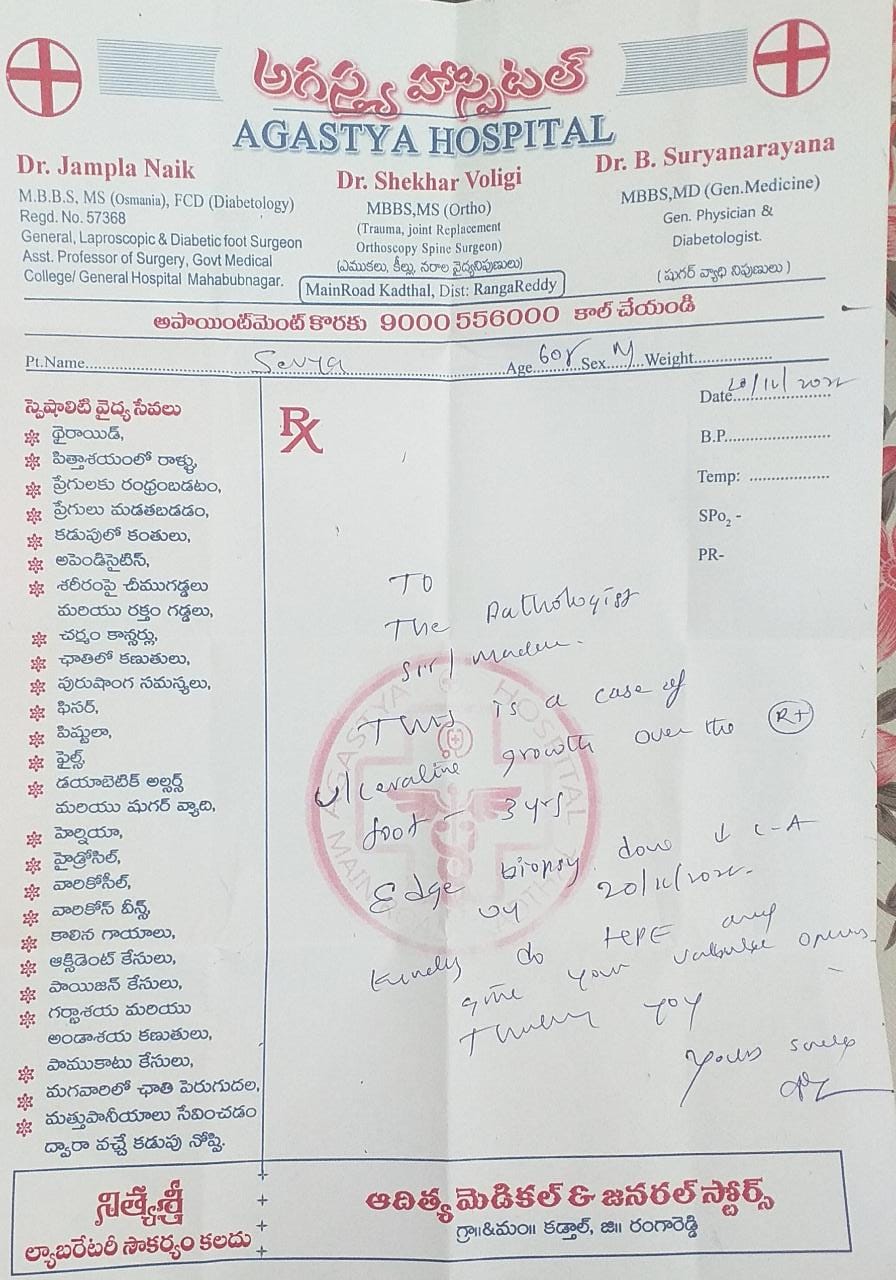 అగస్త్య హాస్పిటల్
AGASTYA HOSPITAL
Dr. Jampla Naik
M.B.B.S, MS (Osmania), FCD (Diabetology)
Regd. No. 57368
General, Laproscopic & Diabetic foot Surgeon
Asst. Professor of Surgery, Govt Medical
College/ General Hospital Mahabubnagar.
Dr. Shekhar Voligi
MBBS,MS (Ortho)
(Trauma, joint Replacement
Orthoscopy Spine Surgeon)
(ఎముకలు, కీల్లు, నరాల వైద్యనిపుణులు)
Dr. B. Suryanarayana
MBBS,MD (Gen.Medicine)
Gen. Physician &
Diabetologist.
(షుగర్ వ్యాధి నిపుణులు)
MainRoad Kadthal, Dist: RangaReddy
అపాయింట్‌మెంట్ కొరకు 9000 556000 కాల్ చేయండి
Pt.Name Age 60 Sex M Weight
Date 20/11/2022
B.P.
Temp:
SPo2 -
PR-
Rx
స్పెషాలిటి వైద్య సేవలు
థైరాయిడ్,
పిత్తాశయంలో రాళ్ళు,
ప్రేగులకు రంధ్రంబడటం,
ప్రేగులు మడతబడడం,
కడుపులో కంతులు,
అపెండిసైటిస్,
శరీరంపై చీముగడ్డలు
మరియు రక్తం గడ్డలు,
చర్మం కాన్సర్లు,
ఛాతిలో కణుతులు,
పురుషాంగ సమస్యలు,
ఫిసర్,
పిష్టులా,
ఫైల్స్,
డయాబెటిక్ అల్సర్స్
మరియు షుగర్ వ్యాది,
హెర్నియా,
హైడ్రోసిల్,
వారికోసీల్,
వారికోస్ వీన్స్,
కాలిన గాయాలు,
ఆక్సిడెంట్ కేసులు,
పాయిజన్ కేసులు,
గర్భాశయ మరియు
అండాశయ కణుతులు,
పాముకాటు కేసులు,
మగవారిలో ఛాతి పెరుగుదల,
మత్తుపానీయాలు సేవించడం
ద్వారా వచ్చే కడుపు నోప్పి.
To
The Pathologist
Sir / Madam.
This is a case of
growth over the Rt
foot - 3 yrs
Edge biopsy done ↓ L-A
20/11/2022.
Kindly do HPE and
give your valuable
Thank you
Yours
నిత్యశ్రీ
ల్యాబరేటరీ సౌకర్యం కలదు
ఆదిత్య మెడికల్ & జనరల్ స్టోర్స్
గ్రా॥&మం॥ కడ్తాల్, జి॥ రంగారెడ్డి